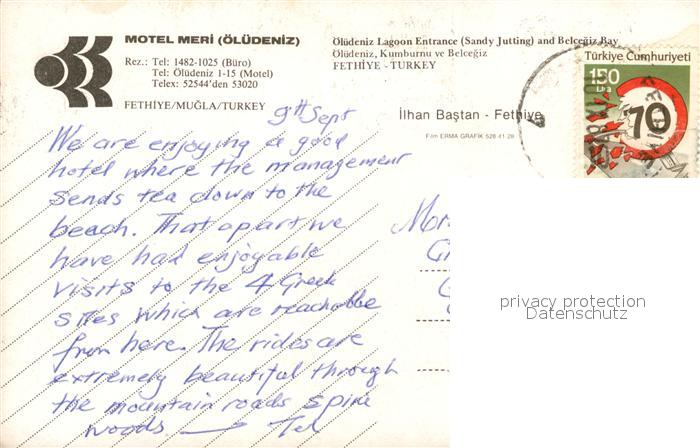 MOTEL MERİ (ÖLÜDENİZ)
Rez.: Tel: 1482-1025 (Büro)
Tel: Ölüdeniz 1-15 (Motel)
Telex: 52544'den 53020
FETHİYE/MUĞLA/TURKEY
Ölüdeniz Lagoon Entrance (Sandy Jutting) and Belceğiz Bay
Ölüdeniz, Kumburnu ve Belceğiz
FETHİYE - TURKEY
Türkiye Cumhuriyeti
150
Lira
70
İlhan Baştan - Fethiye
Film ERMA GRAFİK 528 41 28
9th Sept
We are enjoying a good
hotel where the management
sends tea down to the
beach. That apart we
have had enjoyable
visits to the 4 Greek
sites which are reachable
from here. The rides are
extremely beautiful through
the mountain roads & pine
woods
privacy protection
Datenschutz